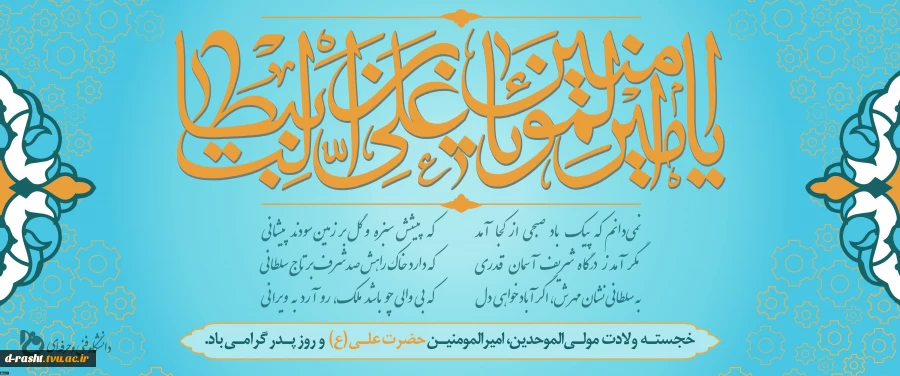 یا امیرالمومنین یا علی بن ابیطالب
نمی‌دانم که پیک باد صبحی از کجا آمد که پیشش سبزه و گل بر زمین سودند پیشانی
مگر آمد ز درگاه شریف آسمان قدری که دارد خاک راهش صد شرف بر تاج سلطانی
به سلطانی نشان مهرش، اگر آباد خواهی دل که بی والی چو باشد ملک، رو آرد به ویرانی
خجسته ولادت مولی‌الموحدین، امیرالمومنین حضرت علی (ع) و روز پدر گرامی باد.
دانشگاه فنی و حرفه‌ای
d-rasht.tvu.ac.ir